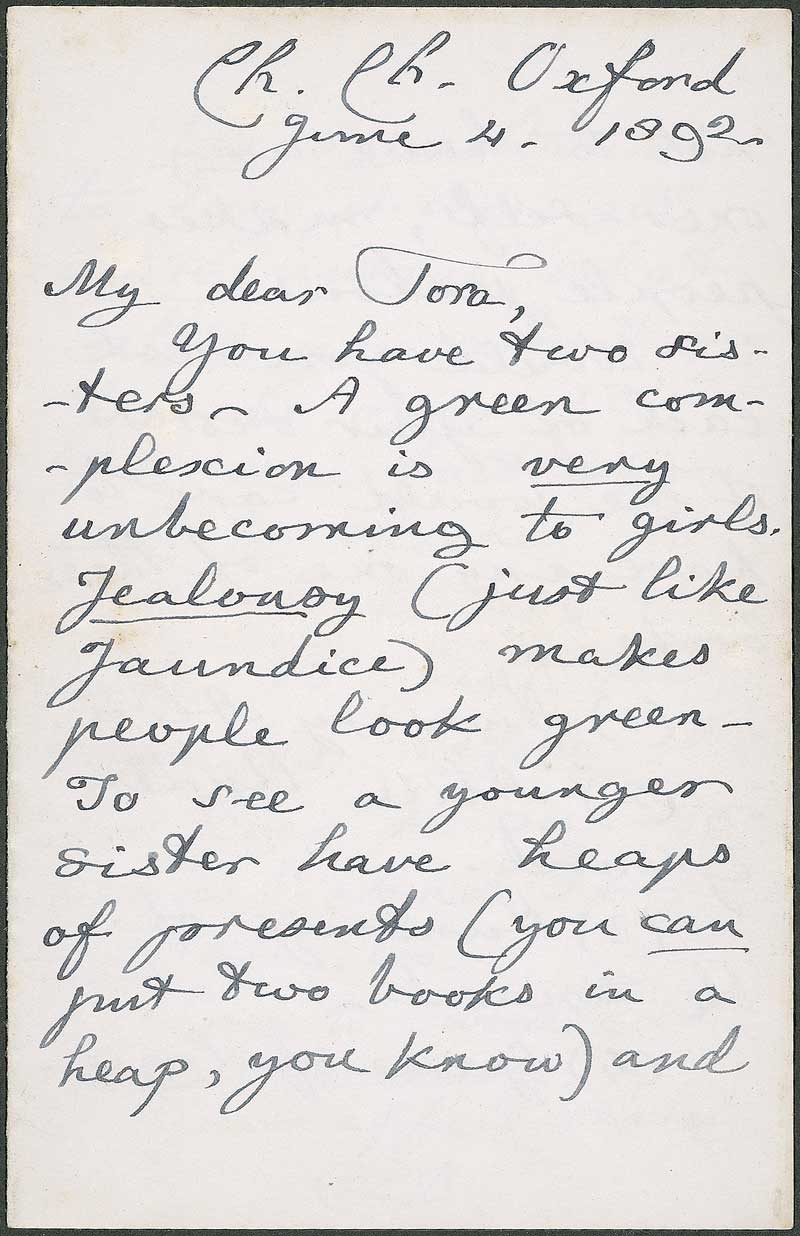 Ch. Ch. Oxford
June 4. 1892.
My dear Tora,
You have two sis-
-ters. A green com-
-plexion is very
unbecoming to girls.
Jealousy (just like
Jaundice) makes
people look green -
To see a younger
sister have heaps
of presents (you can
put two books in a
heap, you know) and